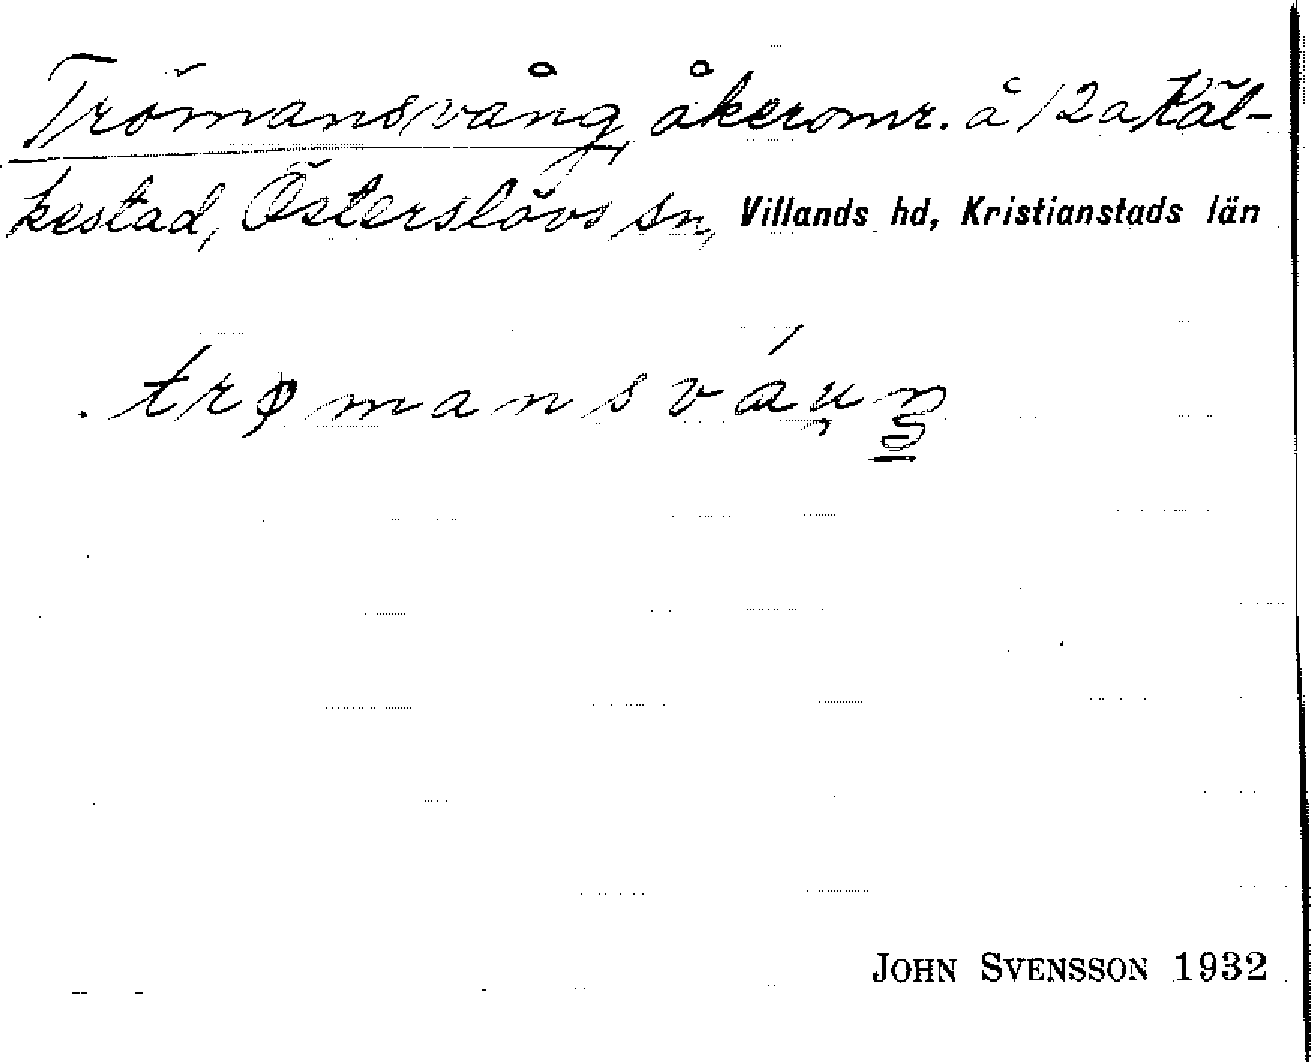 Trömansvång, åkeromr. å 12a Käl-
kestad, Österslövs sn, Villands hd, Kristianstads län
trømansváun̥
JOHN SVENSSON 1932